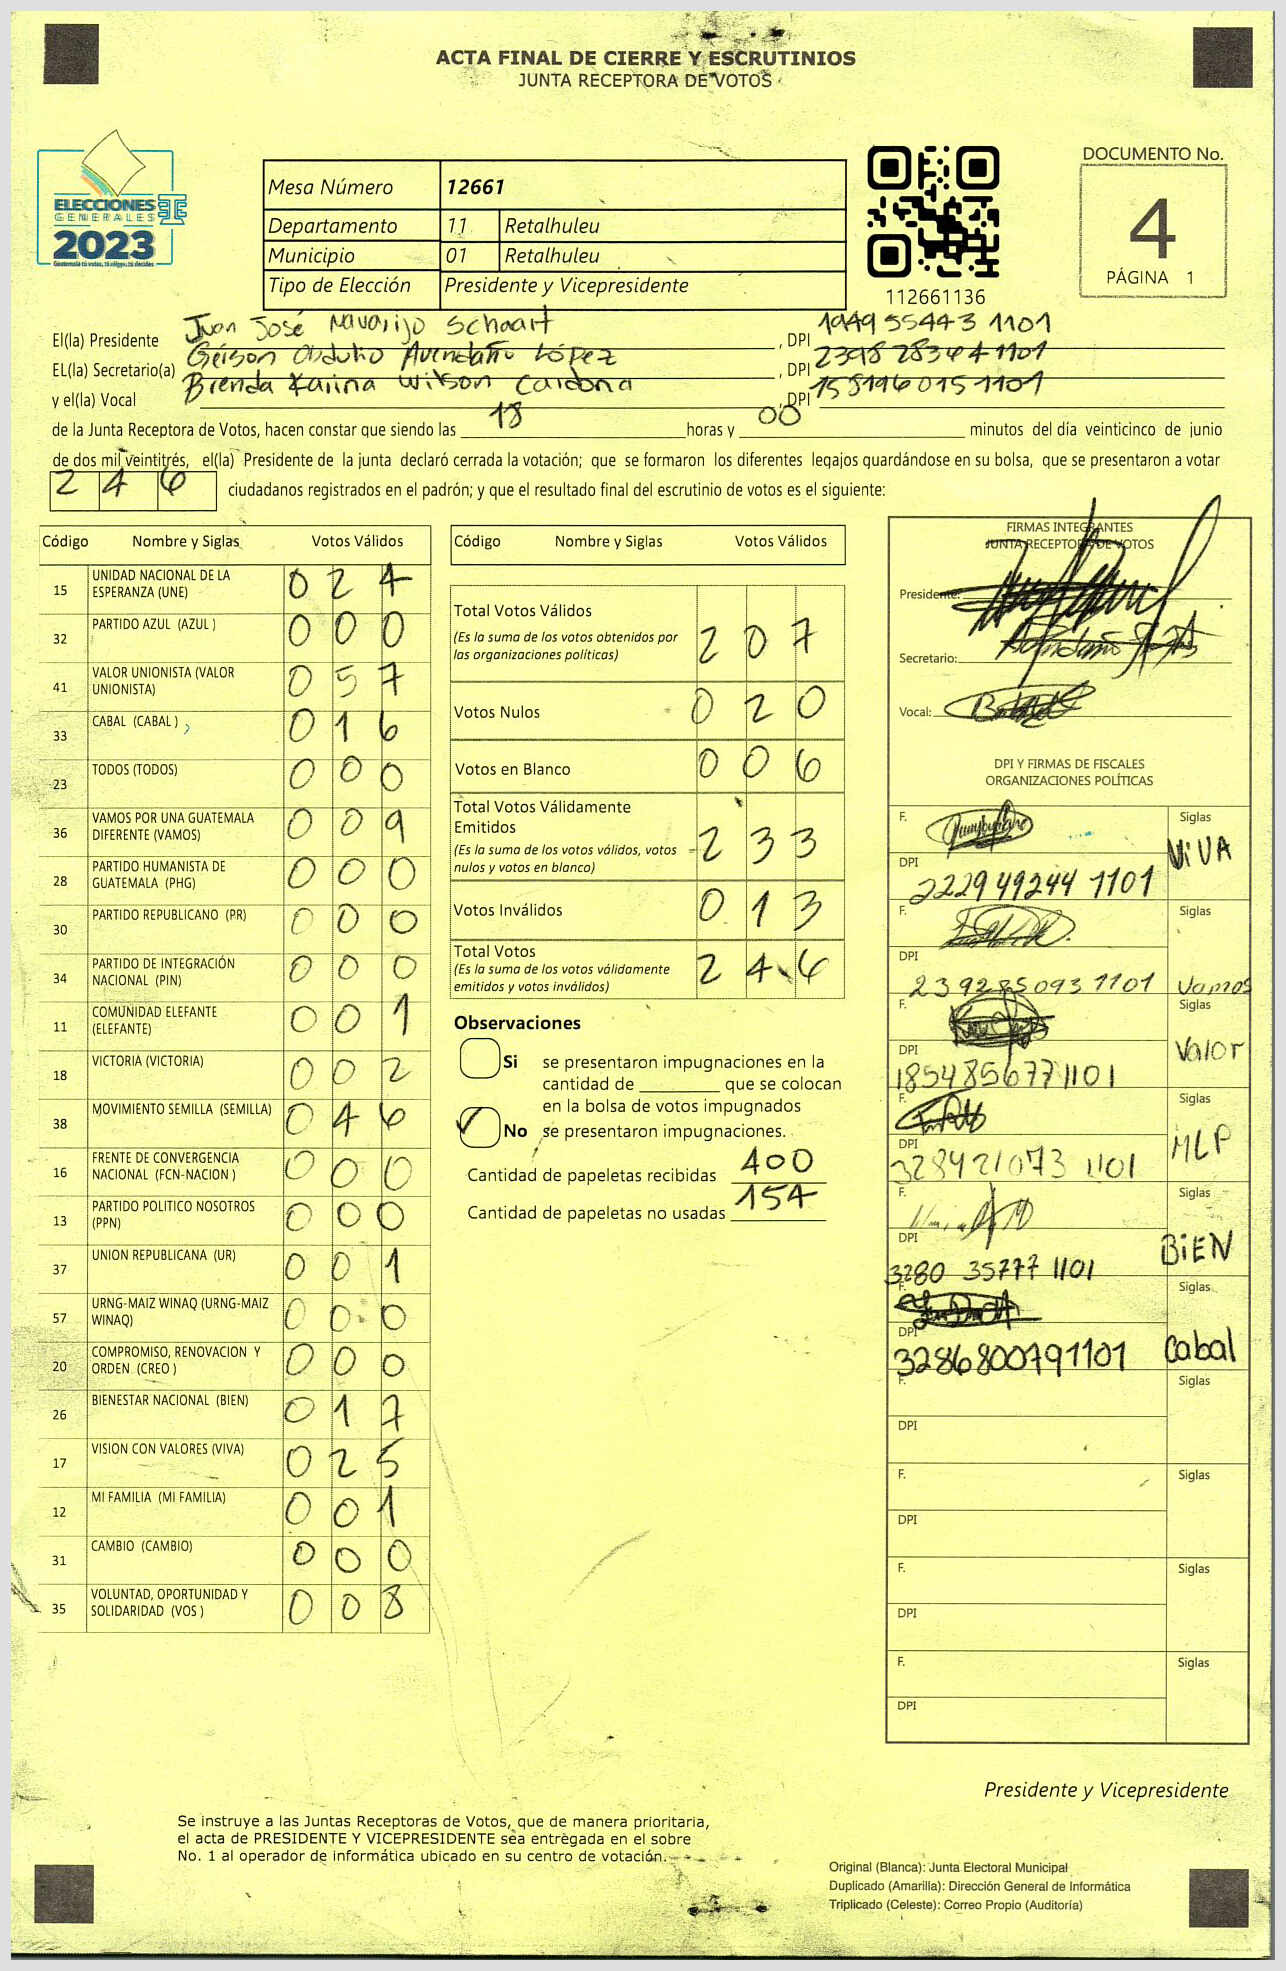 ACTA FINAL DE CIERRE Y ESCRUTINIOS
JUNTA RECEPTORA DE VOTOS
ELECCIONES
GENERALES
2023
Guatemala tú votas, tú eliges, tú decides
Mesa Número 12661
Departamento 11 Retalhuleu
Municipio 01 Retalhuleu
Tipo de Elección Presidente y Vicepresidente
112661136
DOCUMENTO No.
4
PÁGINA 1
El(la) Presidente Juan José Navarijo Schaart, DPI 1949 55443 1101
EL(la) Secretario(a) Geison Obdulio Avendaño López, DPI 2398 28364 1101
y el(la) Vocal Brenda Karina Wilson Cardona, DPI 158196015 1101
de la Junta Receptora de Votos, hacen constar que siendo las 18 horas y 00 minutos del día veinticinco de junio
de dos mil veintitrés, el(la) Presidente de la junta declaró cerrada la votación; que se formaron los diferentes legajos guardándose en su bolsa, que se presentaron a votar
246 ciudadanos registrados en el padrón; y que el resultado final del escrutinio de votos es el siguiente:
Código Nombre y Siglas Votos Válidos
15 UNIDAD NACIONAL DE LA ESPERANZA (UNE) 024
32 PARTIDO AZUL (AZUL ) 000
41 VALOR UNIONISTA (VALOR UNIONISTA) 057
33 CABAL (CABAL ) 016
23 TODOS (TODOS) 000
36 VAMOS POR UNA GUATEMALA DIFERENTE (VAMOS) 009
28 PARTIDO HUMANISTA DE GUATEMALA (PHG) 000
30 PARTIDO REPUBLICANO (PR) 000
34 PARTIDO DE INTEGRACIÓN NACIONAL (PIN) 000
11 COMUNIDAD ELEFANTE (ELEFANTE) 001
18 VICTORIA (VICTORIA) 002
38 MOVIMIENTO SEMILLA (SEMILLA) 046
16 FRENTE DE CONVERGENCIA NACIONAL (FCN-NACION ) 000
13 PARTIDO POLITICO NOSOTROS (PPN) 000
37 UNION REPUBLICANA (UR) 001
57 URNG-MAIZ WINAQ (URNG-MAIZ WINAQ) 000
20 COMPROMISO, RENOVACION Y ORDEN (CREO ) 000
26 BIENESTAR NACIONAL (BIEN) 017
17 VISION CON VALORES (VIVA) 025
12 MI FAMILIA (MI FAMILIA) 001
31 CAMBIO (CAMBIO) 000
35 VOLUNTAD, OPORTUNIDAD Y SOLIDARIDAD (VOS ) 008
Código Nombre y Siglas Votos Válidos
Total Votos Válidos 207
(Es la suma de los votos obtenidos por
las organizaciones políticas)
Votos Nulos 020
Votos en Blanco 006
Total Votos Válidamente
Emitidos 233
(Es la suma de los votos válidos, votos
nulos y votos en blanco)
Votos Inválidos 013
Total Votos 246
(Es la suma de los votos válidamente
emitidos y votos inválidos)
Observaciones
Si se presentaron impugnaciones en la
cantidad de ________ que se colocan
en la bolsa de votos impugnados
No se presentaron impugnaciones.
Cantidad de papeletas recibidas 400
Cantidad de papeletas no usadas 154
FIRMAS INTEGRANTES
JUNTA RECEPTORA DE VOTOS
Presidente:
Secretario:
Vocal:
DPI Y FIRMAS DE FISCALES
ORGANIZACIONES POLÍTICAS
F. Siglas VIVA
DPI 2229 49244 1101
F. Siglas Vamos
DPI 239285093 1101
F. Siglas Valor
DPI 1854856771101
F. Siglas MLP
DPI 328421073 1101
F. Siglas BIEN
DPI 3280 35777 1101
F. Siglas Cabal
DPI 3286800791101
F. Siglas
DPI
F. Siglas
DPI
F. Siglas
DPI
F. Siglas
DPI
Presidente y Vicepresidente
Se instruye a las Juntas Receptoras de Votos, que de manera prioritaria,
el acta de PRESIDENTE Y VICEPRESIDENTE sea entregada en el sobre
No. 1 al operador de informática ubicado en su centro de votación.
Original (Blanca): Junta Electoral Municipal
Duplicado (Amarilla): Dirección General de Informática
Triplicado (Celeste): Correo Propio (Auditoría)